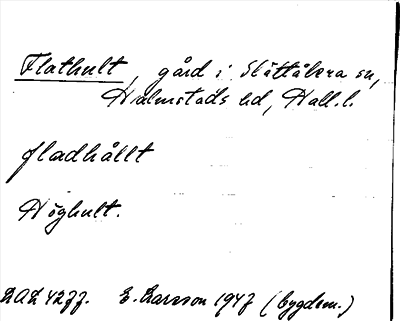 Flathult, gård i Slättåkra sn,
Halmstads hd, Hall. l.
fladhållt
Höghult.
E. Larsson 1947 (bygdem.)